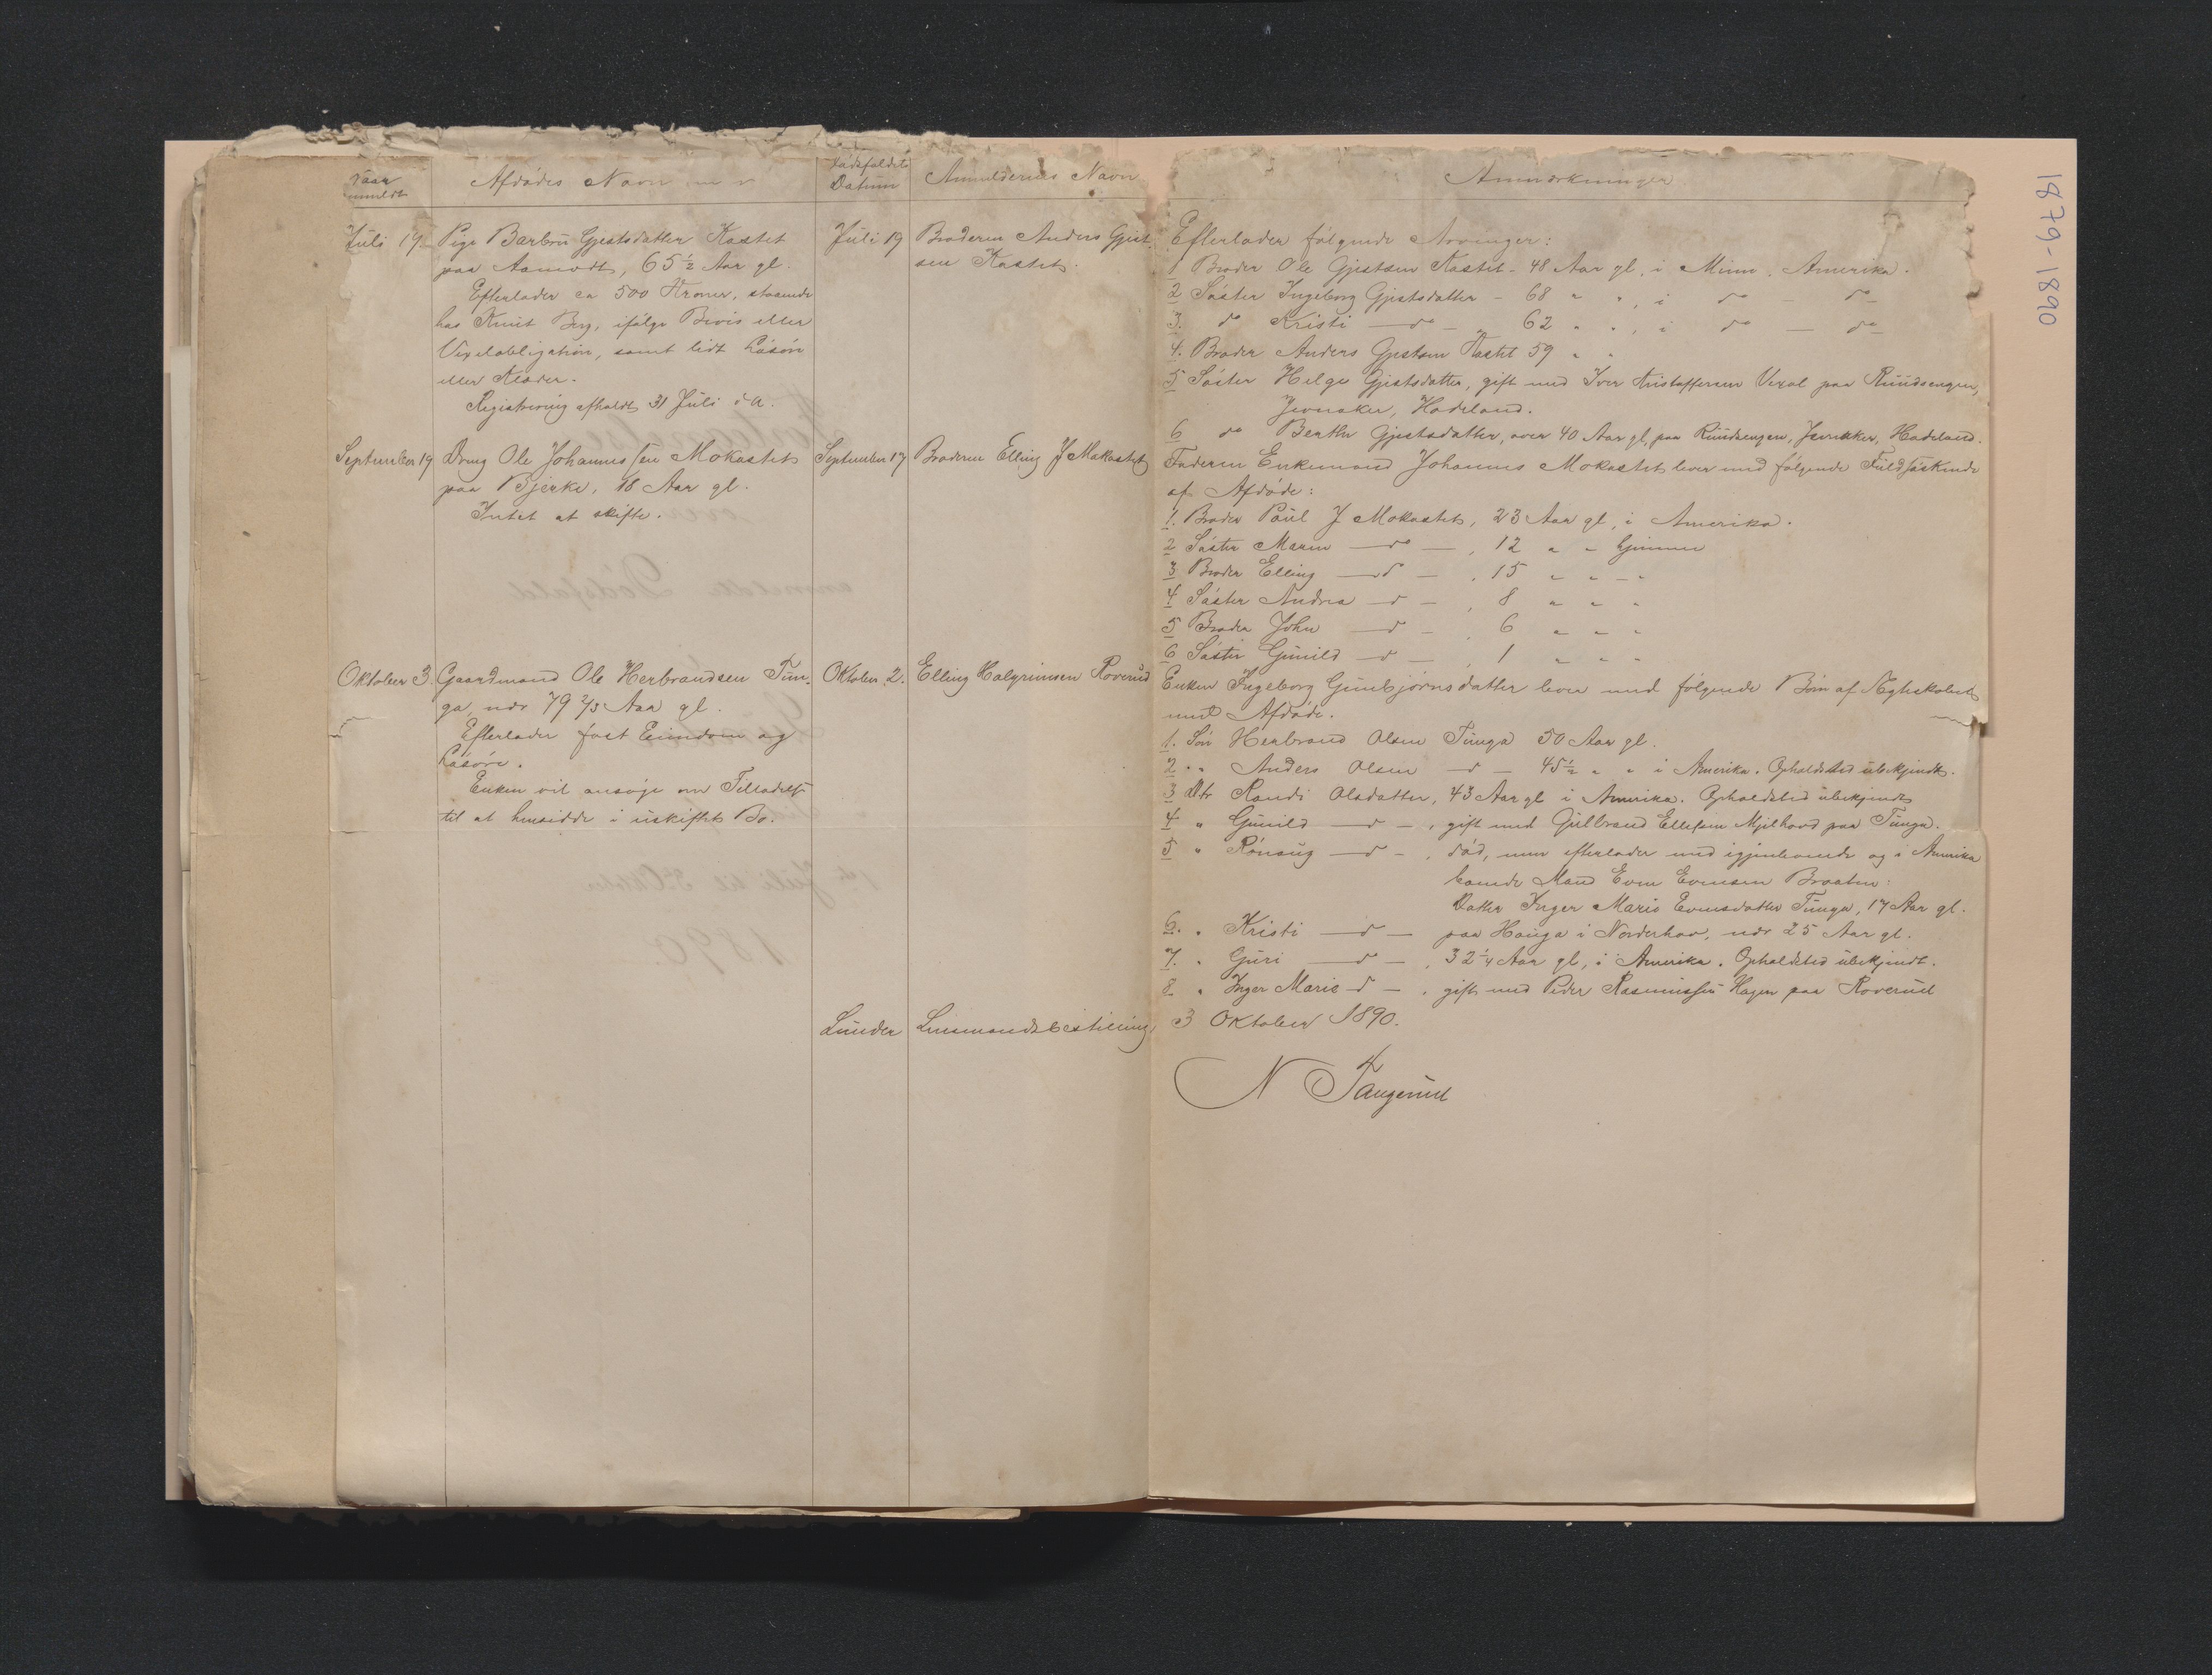 Naar
anmeldt
Afdødes Navn m v
Dødsfaldets
Datum
Anmeldernes Navn
Juli 19
Pige Barbro Gjestsdatter Kastet
paa Aamodt, 65½ Aar gl.
Efterlader ca 500 Kroner, staaende
hos Knut Berg, ifølge Bevis eller
Vexelobligation, samt lidt Løsøre
eller Klæder.
Registrering afholdt 31 Juli d A.
Juli 19
Broderen Anders Gjest-
sen Kastet.
September 19
Dreng Ole Johannessen Mokastet
paa Bjerke, 18 Aar gl.
Intet at skifte.
September 17
Broderen Elling J Mokastet
Oktober 3.
Gaardmand Ole Herbrandsen Tun-
ga, nær 79 2/3 Aar gl.
Efterlader fast Eiendom og
Løsøre.
Enken vil ansøge om Tilladelse
til at hensidde i uskiftet Bo.
Oktober 2.
Elling Halgrimsen Roverud
Lunder Lensmandsbestilling,
Anmærkninger
Efterlader følgende Arvinger:
1 Broder Ole Gjestsen Kastet - 48 Aar gl, i Minn. Amerika.
2 Søster Ingeborg Gjestsdatter - 68 " ", i do - do
3. do Kristi - do - " 62 " ", i do - do
4. Broder Anders Gjestsen Kastet 59 " "
5 Søster Helge Gjestsdatter, gift med Iver Kristoffersen Vexal paa Ruudsengen,
Jevnaker, Hadeland.
6 do Berthe Gjestsdatter, over 40 Aar gl, paa Ruudsengen, Jevnaker, Hadeland.
Faderen Enkemand Johannes Mokastet lever med følgende Fuldsøskende
af Afdøde:
1. Broder Paul J Mokastet, 23 Aar gl, i Amerika.
2 Søster Maren - do - , 12 " " hjemme
3 Broder Elling - d - , 15 " " - "
4 Søster Andrea - d - , 8 " " "
5 Broder John - d - , 6 " " "
6 Søster Gunild - d - , 1 " " "
Enken Ingeborg Gunbjørnsdatter lever med følgende Børn af Ægteskabet
med Afdøde.
1. Søn Herbrand Olsen Tunga 50 Aar gl.
2 " " Anders Olsen - d - 45½ " " i Amerika. Opholdsted ubekjendt.
3 Dtr Randi Olsdatter, 43 Aar gl i Amerika. Opholdsted ubekjendt
4 " Gunild - d - , gift med Gulbrand Ellefsen Mjelhovd paa Tunga.
5 " Rønaug - d - , død, men efterlader med igjenlevende og i Amerika
boende Mand Even Evensen Braaten:
Datter Inger Marie Evensdatter Tunga, 17 Aar gl.
6. " Kristi - d - paa Hauga i Norderhov, nær 25 Aar gl.
7. " Guri - d - , 32¼ Aar gl, i Amerika. Opholdsted ubekjendt.
8 " Inger Marie - d - , gift med Peder Rasmussen Hagen paa Roverud
3 Oktober 1890.
N Taugerud
1879-1890